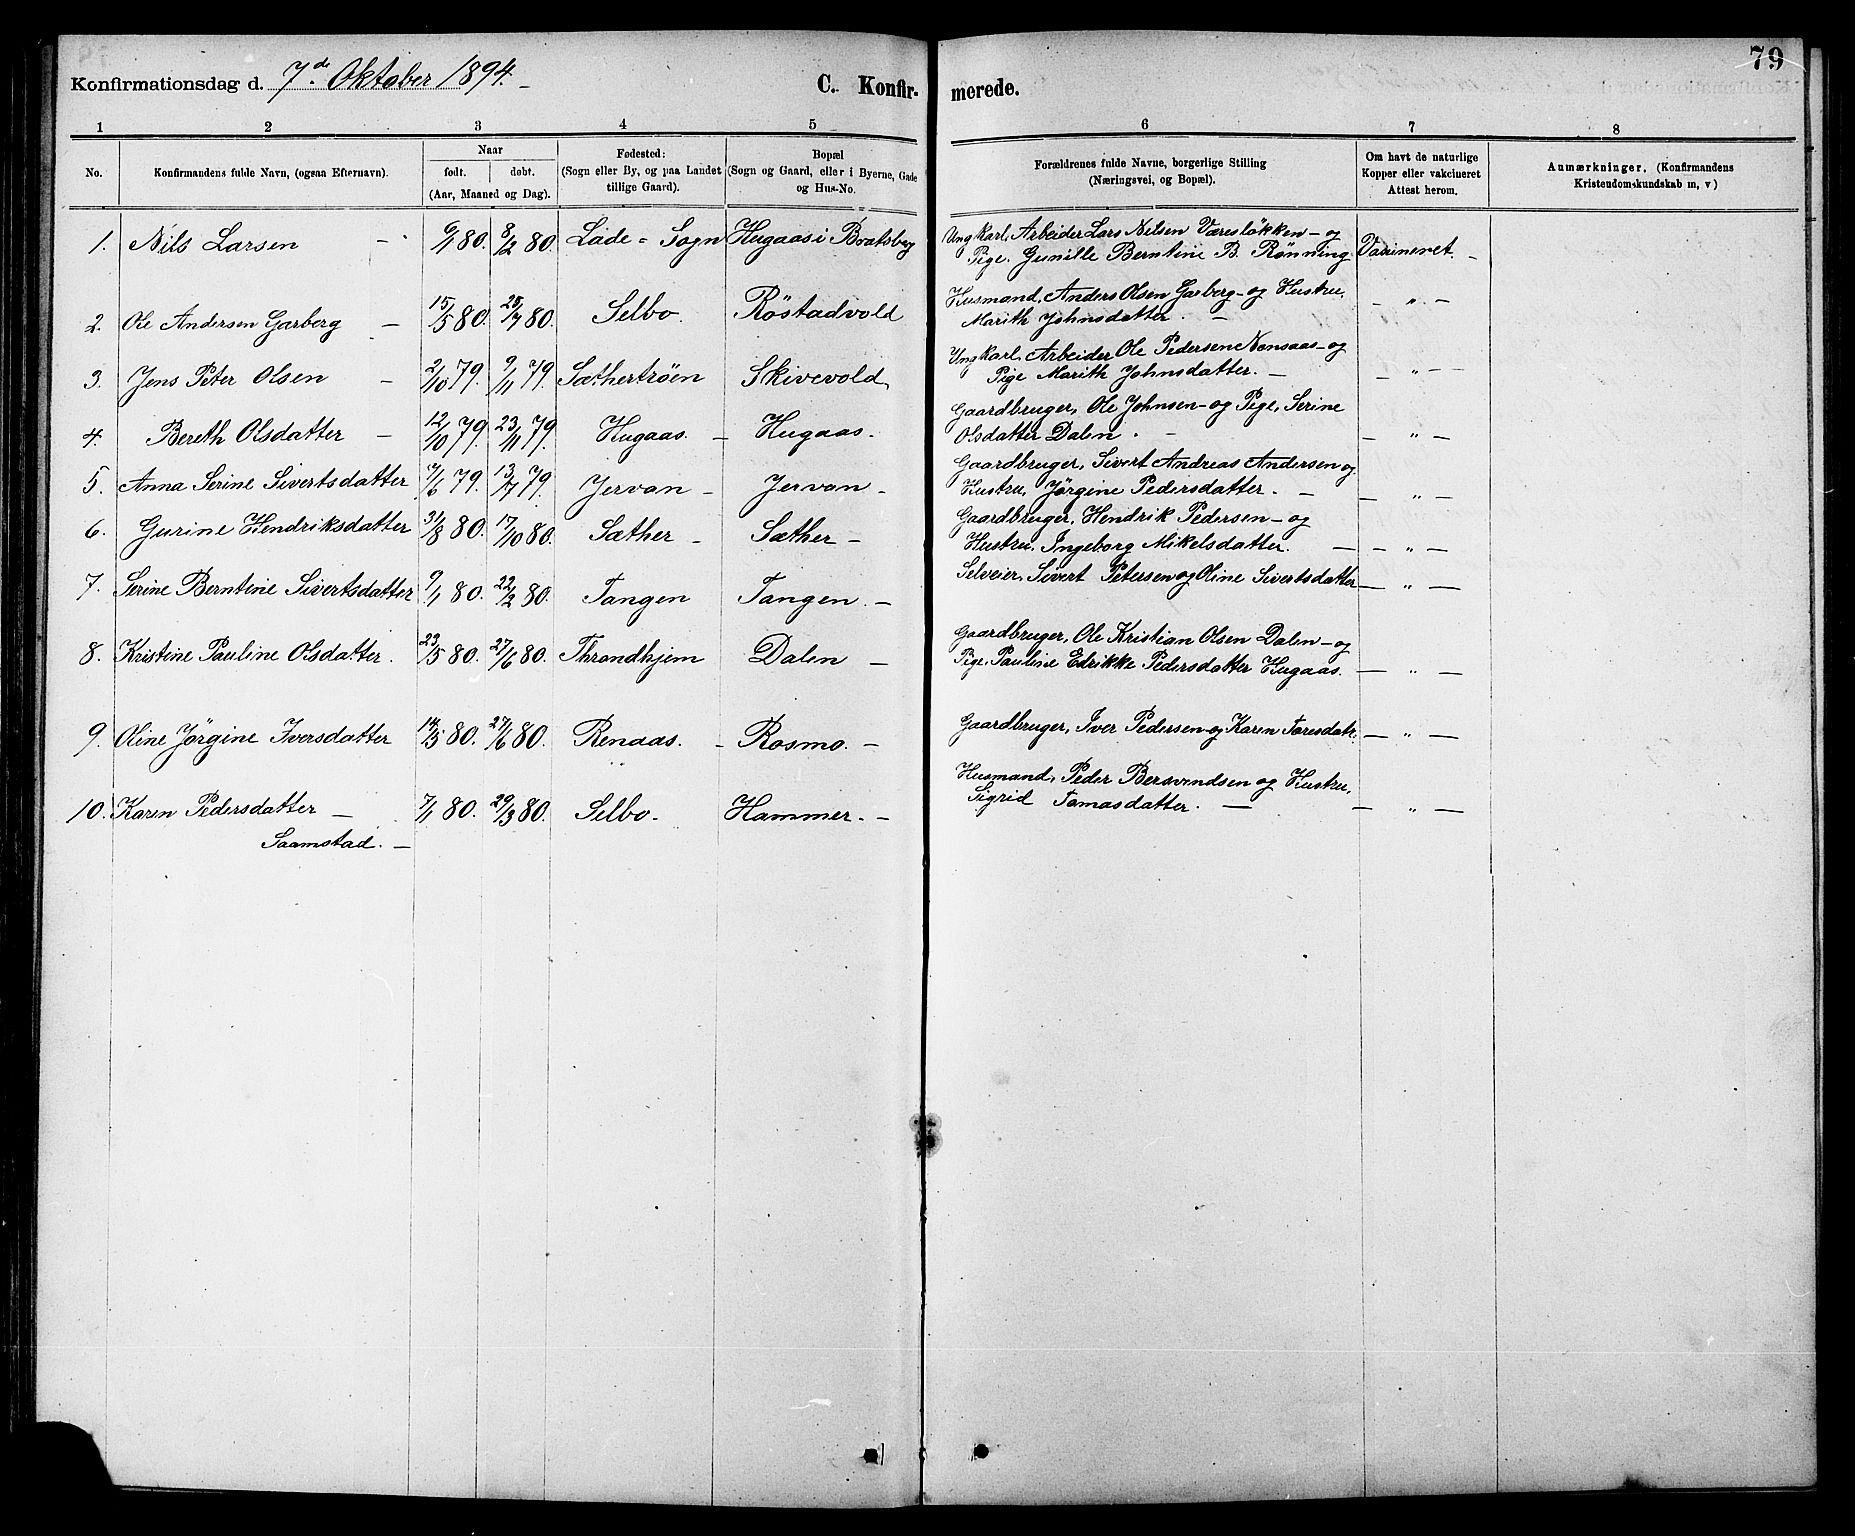 79
Konfirmationsdag d. 7de Oktober 1894.
C. Konfirmerede.
1 2 3 4 5 6 7 8
No. Konfirmandens fulde Navn, (ogsaa Efternavn). Naar født. døbt. (Aar, Maaned og Dag). Fødested: (Sogn eller By, og paa Landet tillige Gaard). Bopæl (Sogn og Gaard, eller i Byerne, Gade og Hus-No. Forældrenes fulde Navne, borgerlige Stilling (Næringsvei, og Bopæl). Om havt de naturlige Kopper eller vakcineret Attest herom. Anmærkninger, (Konfirmandens Kristendomskundskab m, v)
1. Nils Larsen – 6/1 80. 8/2 80. Lade = Sogn Hugaas i Bratsberg Ungkarl, Arbeider Lars Nilsen Væresløkken – og
Pige. Gunille Berntine B. Rønning. Vaccineret. –
2. Ole Andersen Garberg – 15/5 80. 25/7 80. Selbo. Röstadvold Husmand, Anders Olsen Garberg – og Hustru,
Marith Johnsdatter. – – " –
3. Jens Peter Olsen – 2/10 79. 9/11 79. Sæthertrøen Skivevold Ungkarl, Arbeider Ole Pedersen Nonsaas – og
Pige Marith Johnsdatter. – – " –
4. Bereth Olsdatter – 12/10 79. 23/11 79. Hugaas. – Hugaas. Gaardbruger, Ole Johnsen – og Pige, Serine
Olsdatter Dalen. – – " –
5. Anna Serine Sivertsdatter 7/6 79. 13/7 79. Jervan – Jervan – Gaardbruger, Sivert Andreas Andersen og
Hustru, Jørgine Pedersdatter. – – " –
6. Gurine Hendriksdatter 31/8 80. 17/10 80. Sæther – Sæther – Gaardbruger, Hendrik Pedersen – og
Hustru, Ingeborg Mikelsdatter. – – " –
7. Serine Berntine Sivertsdatter 9/1 80. 22/2 80. Tangen Tangen. – Selveier, Sivert Petersen og Oline Sivertsdatter – " –
8. Kristine Pauline Olsdatter. 23/5 80. 27/6 80. Throndhjem Dalen – Gaardbruger, Ole Kristian Olsen Dalen – og
Pige, Pauline Edrikke Pedersdatter Hugaas. – " –
9. Oline Jørgine Iversdatter 14/5 80. 27/6 80. Renaas. – Rosmo. – Gaardbruger, Iver Pedersen – og Karen Toresdatr. – " –
10. Karen Pedersdatter – 7/1 80. 29/3 80. Selbo. Hammer. – Husmand, Peder Bersvendsen og Hustru,
Saamstad. – Sigrid Tamasdatter. – – " –